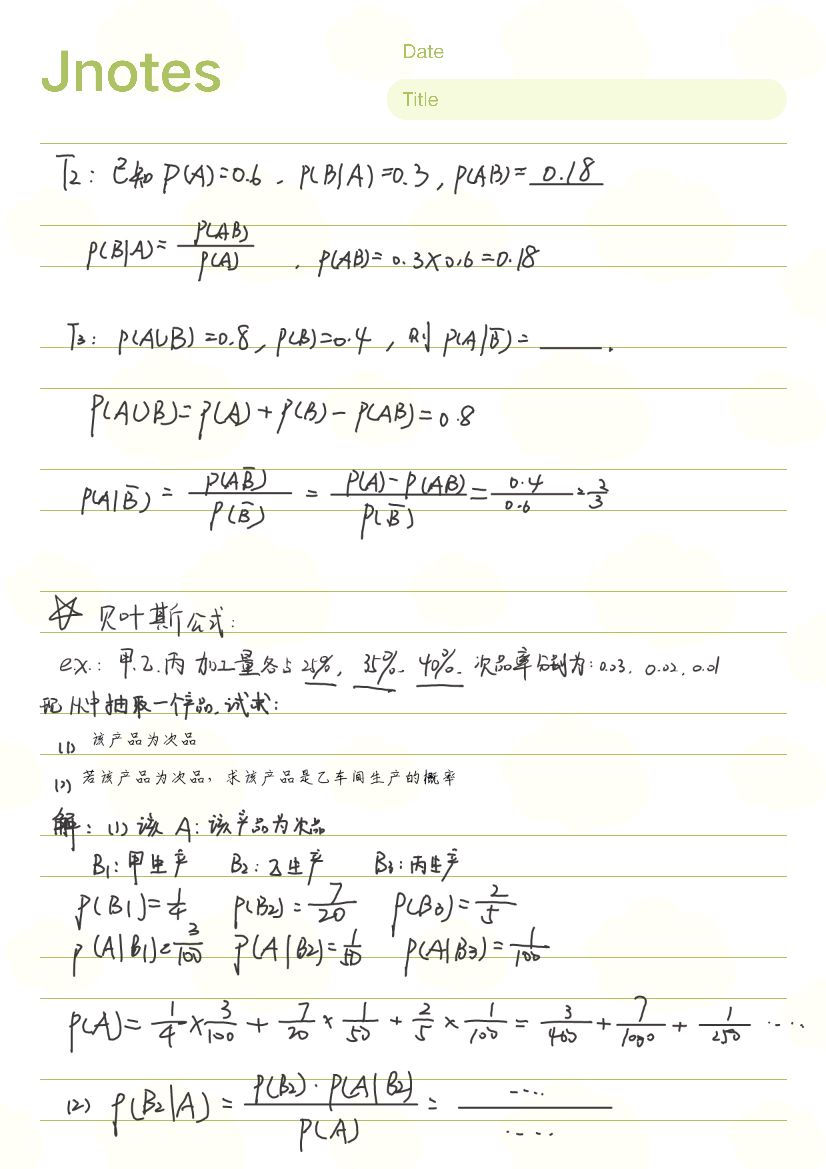 Jnotes
Date
Title
T2: 已知 P(A)=0.6 . P(B|A)=0.3, P(AB)= 0.18
P(B|A)= P(AB)/P(A) , P(AB)= 0.3×0.6=0.18
T3: P(A∪B)=0.8, P(B)=0.4 , 则 P(A|B̅)= ____ .
P(A∪B)=P(A)+P(B)-P(AB)=0.8
P(A|B̅) = P(AB̅)/P(B̅) = P(A)-P(AB)/P(B̅) = 0.4/0.6 = 2/3
☆ 贝叶斯公式:
ex.: 甲.乙.丙 加工量各占25%, 35%. 40%. 次品率分别为: 0.03. 0.02. 0.01
现从中抽取一个产品.试求:
(1) 该产品为次品
(2) 若该产品为次品,求该产品是乙车间生产的概率
解: (1) 该 A: 该产品为次品
B1: 甲生产 B2: 乙生产 B3: 丙生产
P(B1)=1/4 P(B2)=7/20 P(B3)=2/5
P(A|B1)=3/100 P(A|B2)=1/50 P(A|B3)=1/100
P(A)= 1/4 × 3/100 + 7/20 × 1/50 + 2/5 × 1/100 = 3/400 + 7/1000 + 1/250 ....
(2) P(B2|A) = P(B2)·P(A|B2)/P(A) = ..../.....